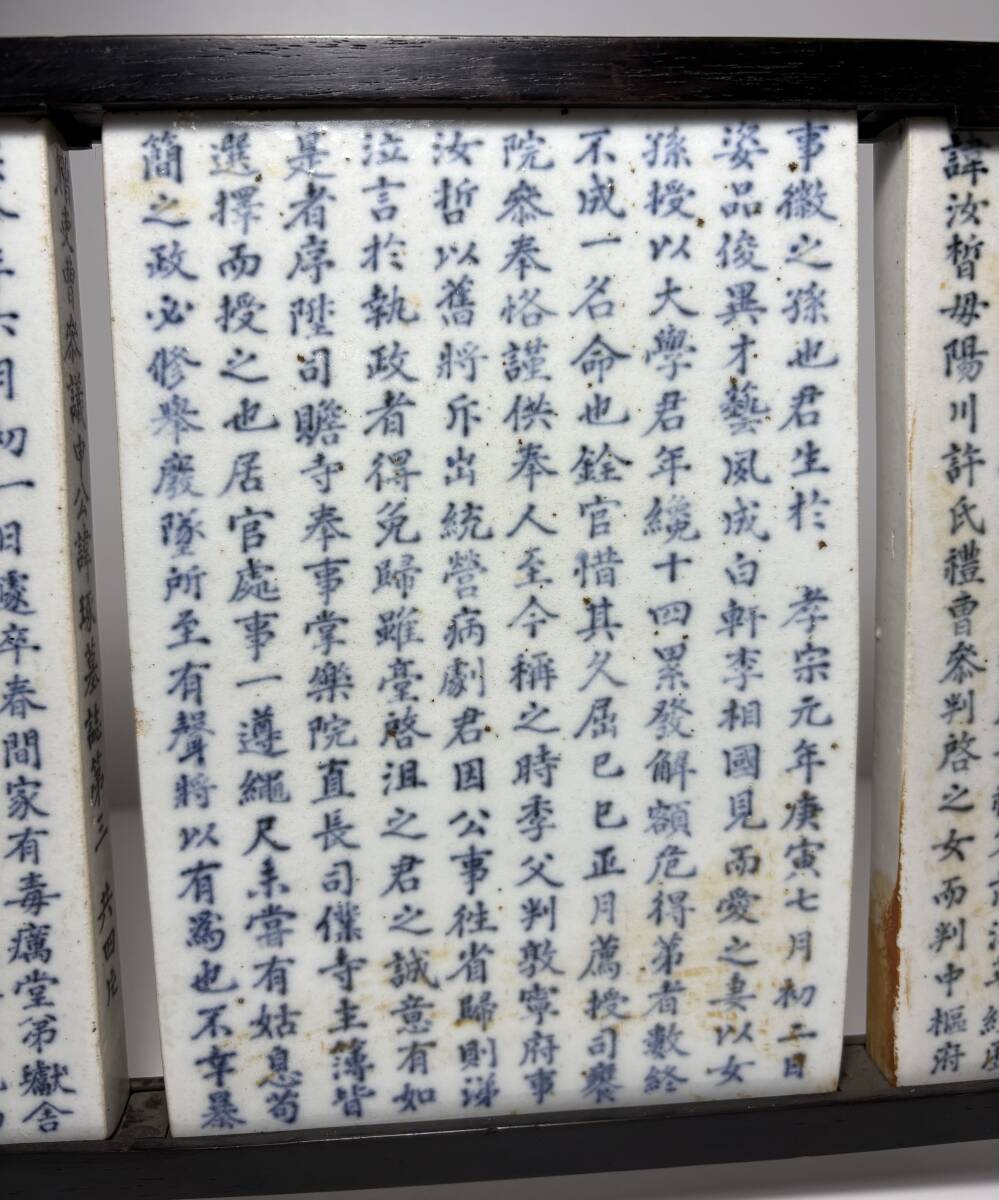 諱汝晳母陽川許氏禮曹參判啓之女而判中樞府
事徽之孫也君生於 孝宗元年庚寅七月初二日
姿品俊異才藝夙成白軒李相國見而愛之妻以女
孫授以大學君年纔十四累發解額危得第者數終
不成一名命也銓官惜其久屈己巳正月薦授司饔
院參奉恪謹供奉人至今稱之時季父判敦寧府事
汝哲以舊將斥出統營病劇君因公事往省歸則涕
泣言於執政者得免歸雖臺啓沮之君之誠意有如
是者序陞司贍寺奉事掌樂院直長司僕寺主簿皆
選擇而授之也居官處事一遵繩尺未嘗有姑息苟
簡之政必修舉廢墜所至有聲將以有爲也不幸暴
曹參議申公諱琢墓誌第三 共四片
年六月初一日遽卒春間家有毒癘堂弟獻舍